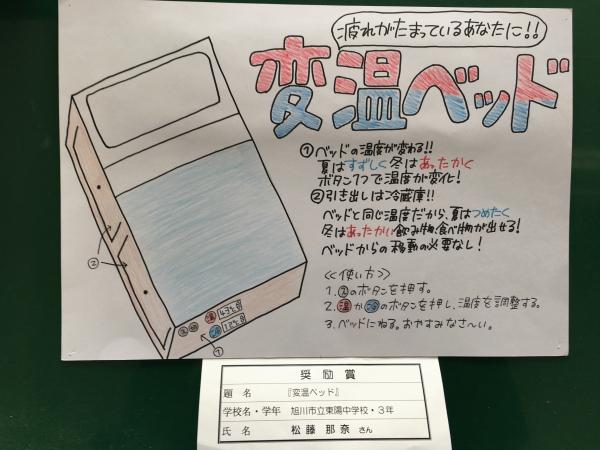 疲れがたまっているあなたに!!
変温ベッド
① ベッドの温度が変わる!!
夏はすずしく冬はあったかく
ボタン1つで温度が変化!
② 引き出しは冷蔵庫!!
ベッドと同じ温度だから、夏はつめたく
冬はあったかい飲み物、食べ物が出せる!
ベッドからの移動の必要なし!
≪使い方≫
1. 入のボタンを押す。
2. 温か冷のボタンを押し、温度を調整する。
3. ベッドにねる。おやすみなさ〜い。
②
入 切 温 43℃
冷 12℃
①
奨励賞
題 名 『変温ベッド』
学校名・学年 旭川市立東陽中学校・3年
氏 名 松藤 那奈 さん